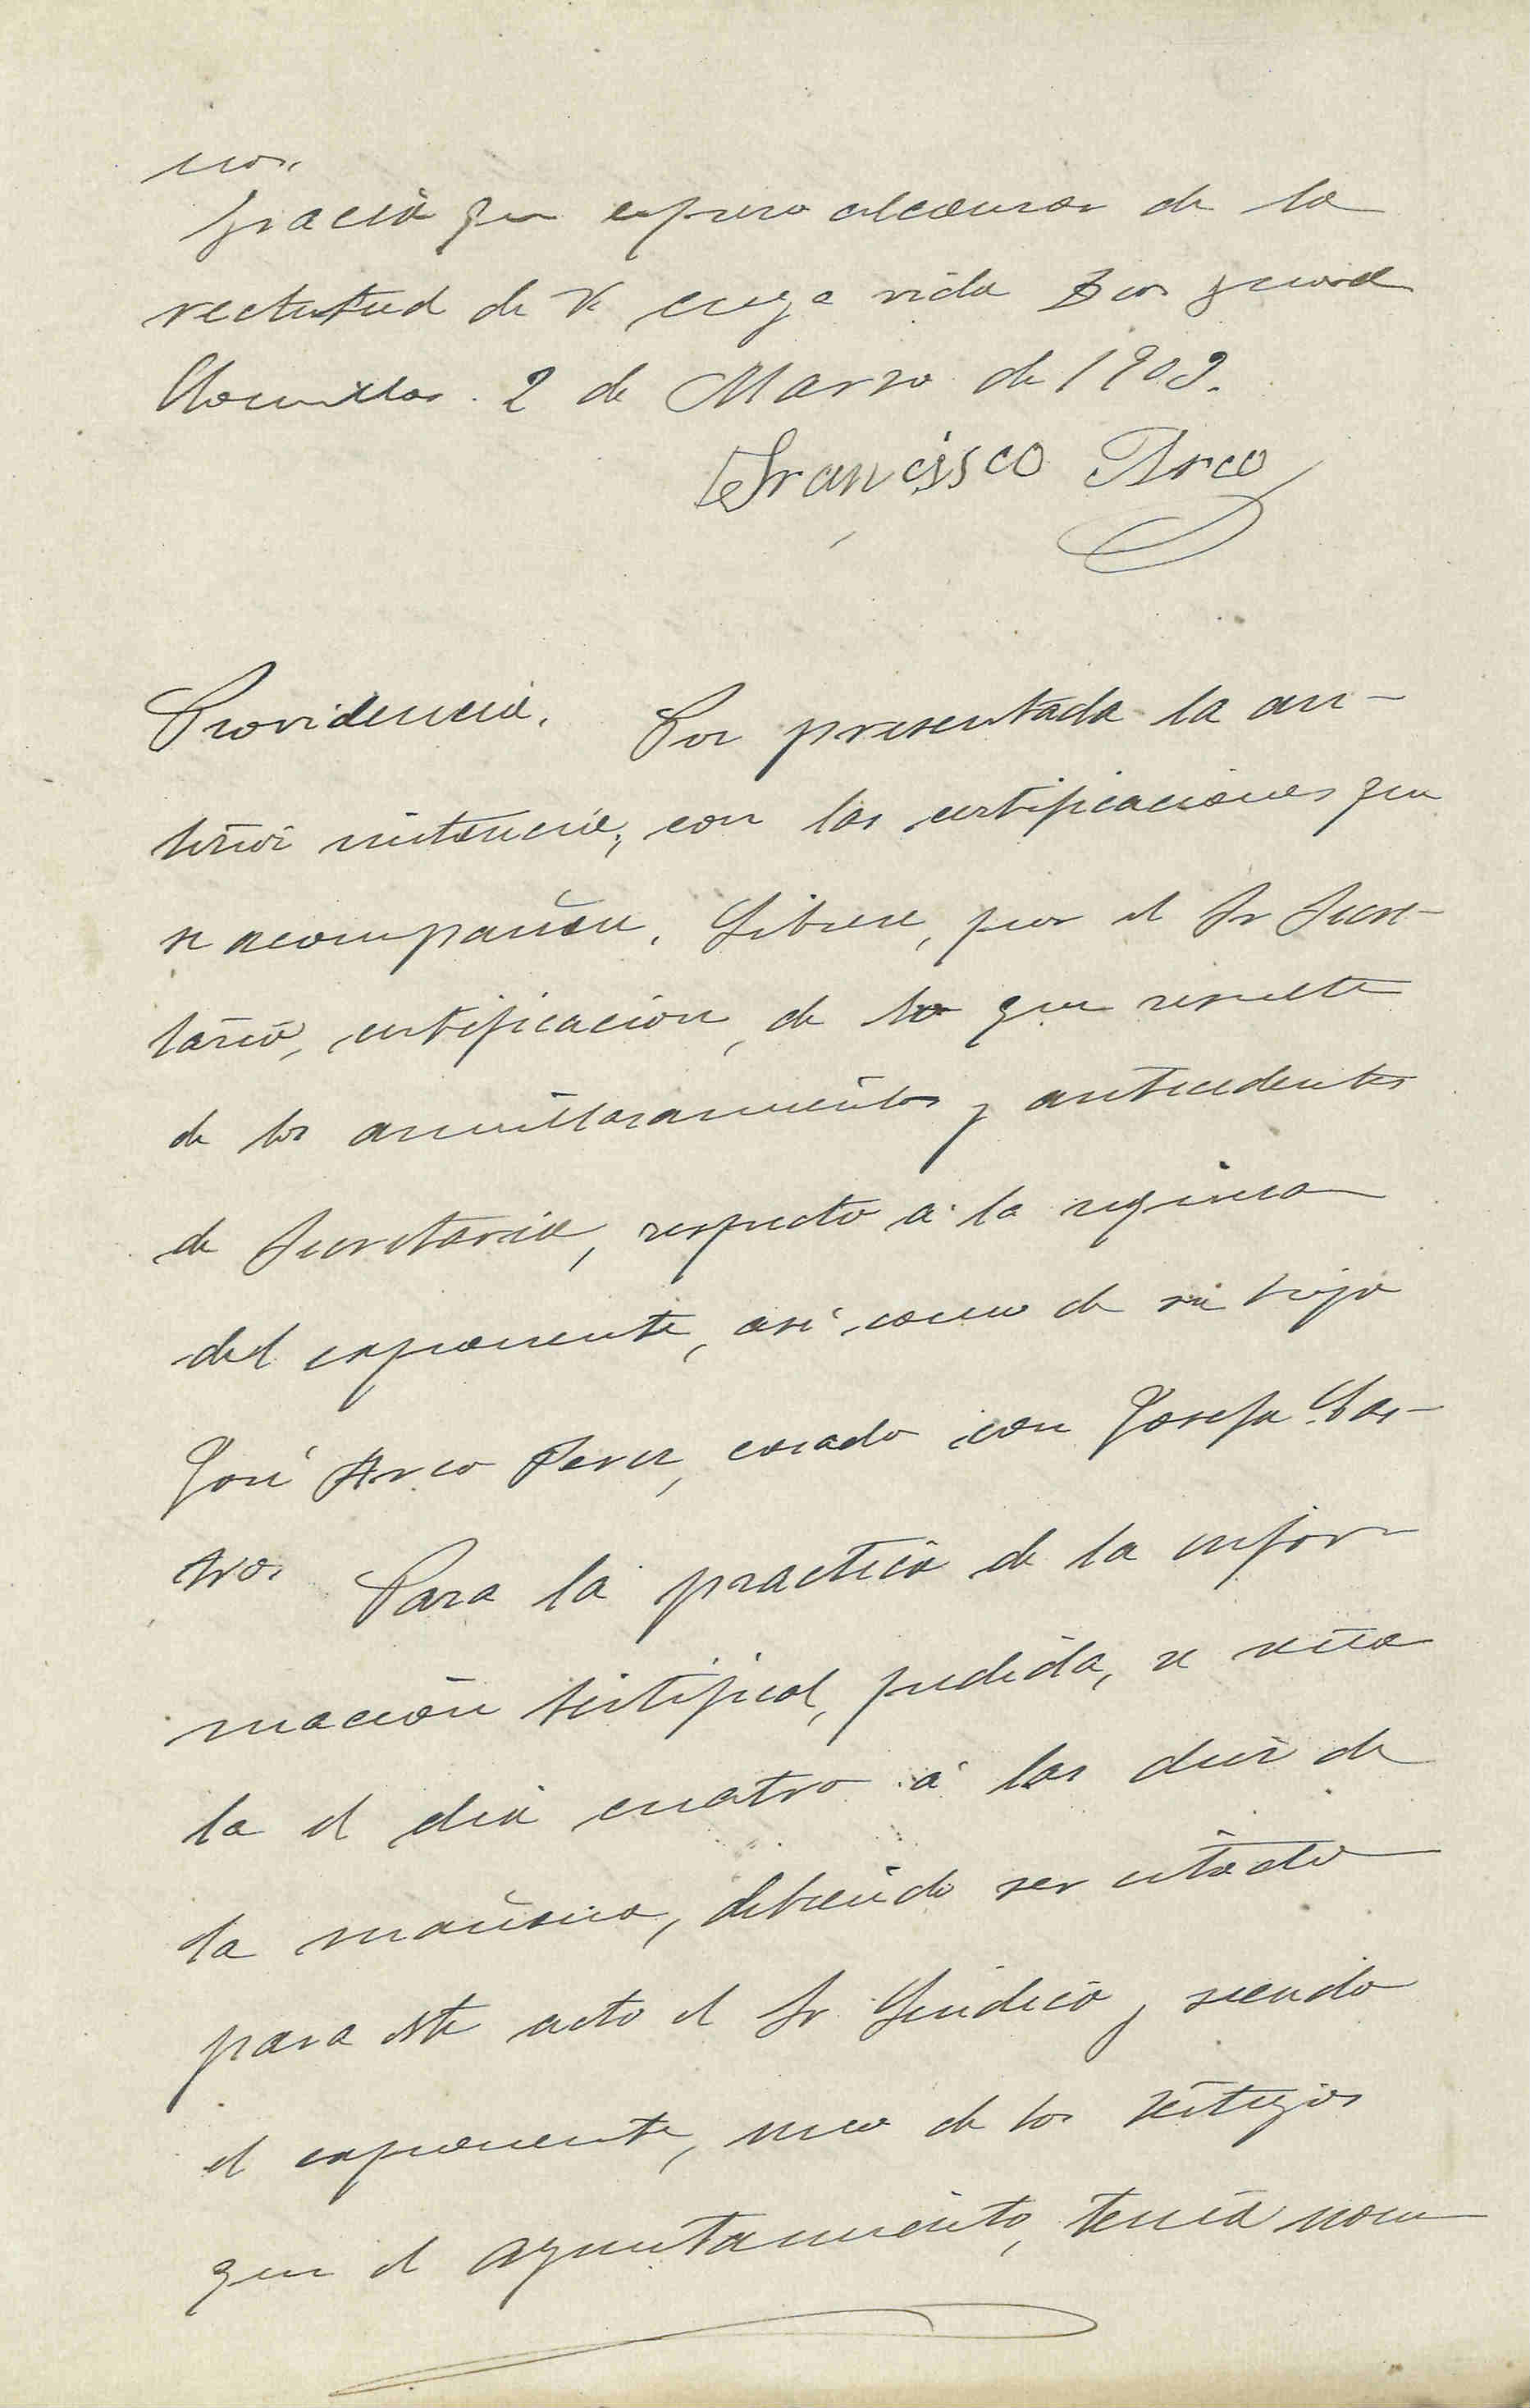 nos.
Gracia que espero alcanzar de la
rectitud de V. cuya vida Dios guarde
2 de Marzo de 1909.
Francisco Arco
Providencia. Por presentada la an-
terior instancia, con las certificaciones que
se acompañan. Librese, por el Sr Secre-
tario, certificacion, de lo que resulte
de los amillaramientos y antecedentes
de Secretaria, respecto á la riqueza
del exponente, así como de su hijo
José Arco Perez, casado con Josefa Cas-
tro. Para la practica de la infor-
macion testifical, pedida, se seña
la el dia cuatro á las diez de
la mañana, debiendo ser citado
para este acto el Sr. Sindico y siendo
el exponente, uno de los testigos
que el ayuntamiento, tenia nom